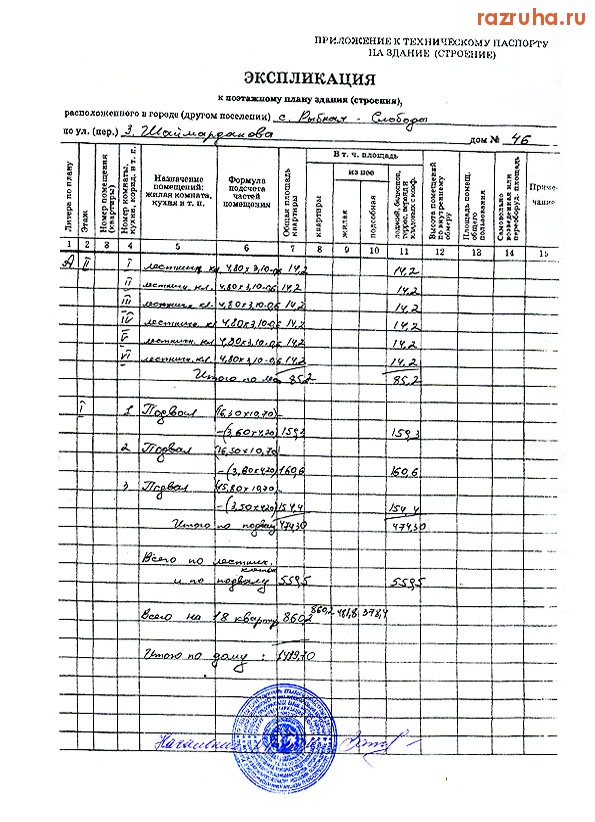 razruha.ru
ПРИЛОЖЕНИЕ К ТЕХНИЧЕСКОМУ ПАСПОРТУ
НА ЗДАНИЕ (СТРОЕНИЕ)
ЭКСПЛИКАЦИЯ
к поэтажному плану здания (строения),
расположенного в городе (другом поселении) с. Рыбная - Слобода
по ул. (пер.) З. Шаймарданова дом № 46
Литера по плану
Этаж
Номер помещения (квартиры)
Номер комнаты, кухни, корид. и т. п.
Назначение помещений: жилая комната, кухня и т. п.
Формула подсчета частей помещения
Общая площадь квартиры
В т. ч. площадь
квартиры
из нее
жилая
подсобная
лоджий, балконов, террас, веранд и кладовых с коэф.
Высота помещений по внутреннему обмеру
Площадь помещ. общего пользования
Самовольно возведенная или переоборуд. площадь
Примечание
1 2 3 4 5 6 7 8 9 10 11 12 13 14 15
А II I лестничн. кл. 4,80х3,10-0,6 14,2 14,2
II лестничн. кл. 4,80х3,10-0,6 14,2 14,2
III лестничн. кл. 4,80х3,10-0,6 14,2 14,2
IV лестничн. кл. 4,80х3,10-0,6 14,2 14,2
V лестничн. кл. 4,80х3,10-0,6 14,2 14,2
VI лестничн. кл. 4,80х3,10-0,6 14,2 14,2
Итого по лес 85,2 85,2
I 1 Подвал (16,30х10,70)-
-(3,60х4,20) 159,3 159,3
2 Подвал (16,50х10,70)
-(3,80х4,20) 160,6 160,6
3 Подвал (15,80х10,70)-
-(3,50х4,20) 154,4 154,4
Итого по подвалу 474,30 474,30
Всего по лестнич. клеткам
и по подвалу 559,5 559,5
Всего на 18 квартир 860,2 860,2 481,8 378,4
Итого по дому : 1419,70
Начальник